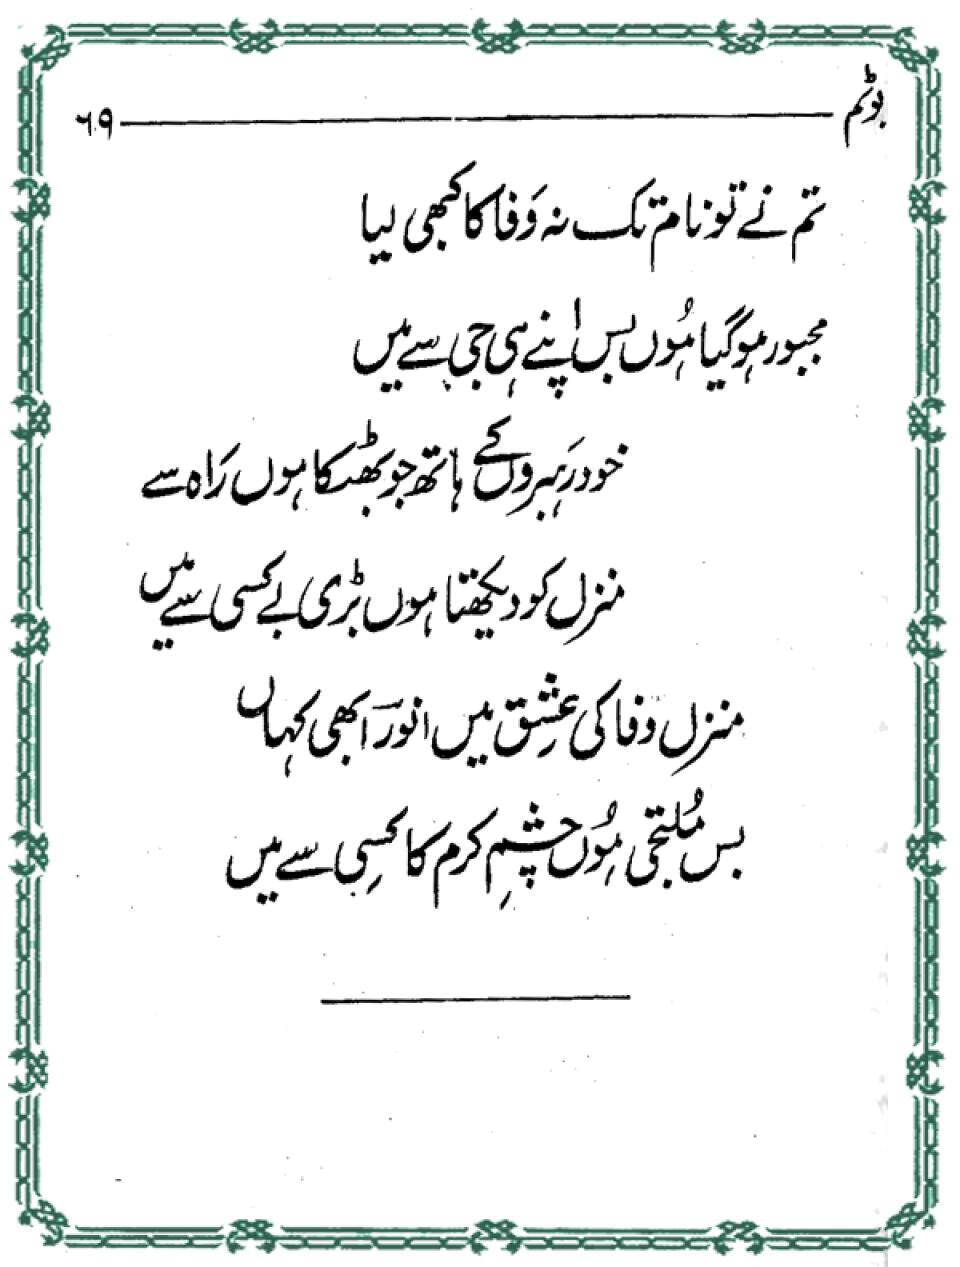 بوٹم ۶۹
تم نے تو نام تک نہ وَفا کا کبھی لیا
مجبور ہو گیا ہُوں بس اپنے ہی جی سے میں
خود رَہبروں کے ہاتھ جو بھٹکا ہوں رَاہ سے
منزل کو دیکھتا ہوں بڑی بے کسی سے میں
منزل وفا کی عشِق میں انورؔ ابھی کہاں
بس مُلتجی ہُوں چشمِ کرم کا کسِی سے میں